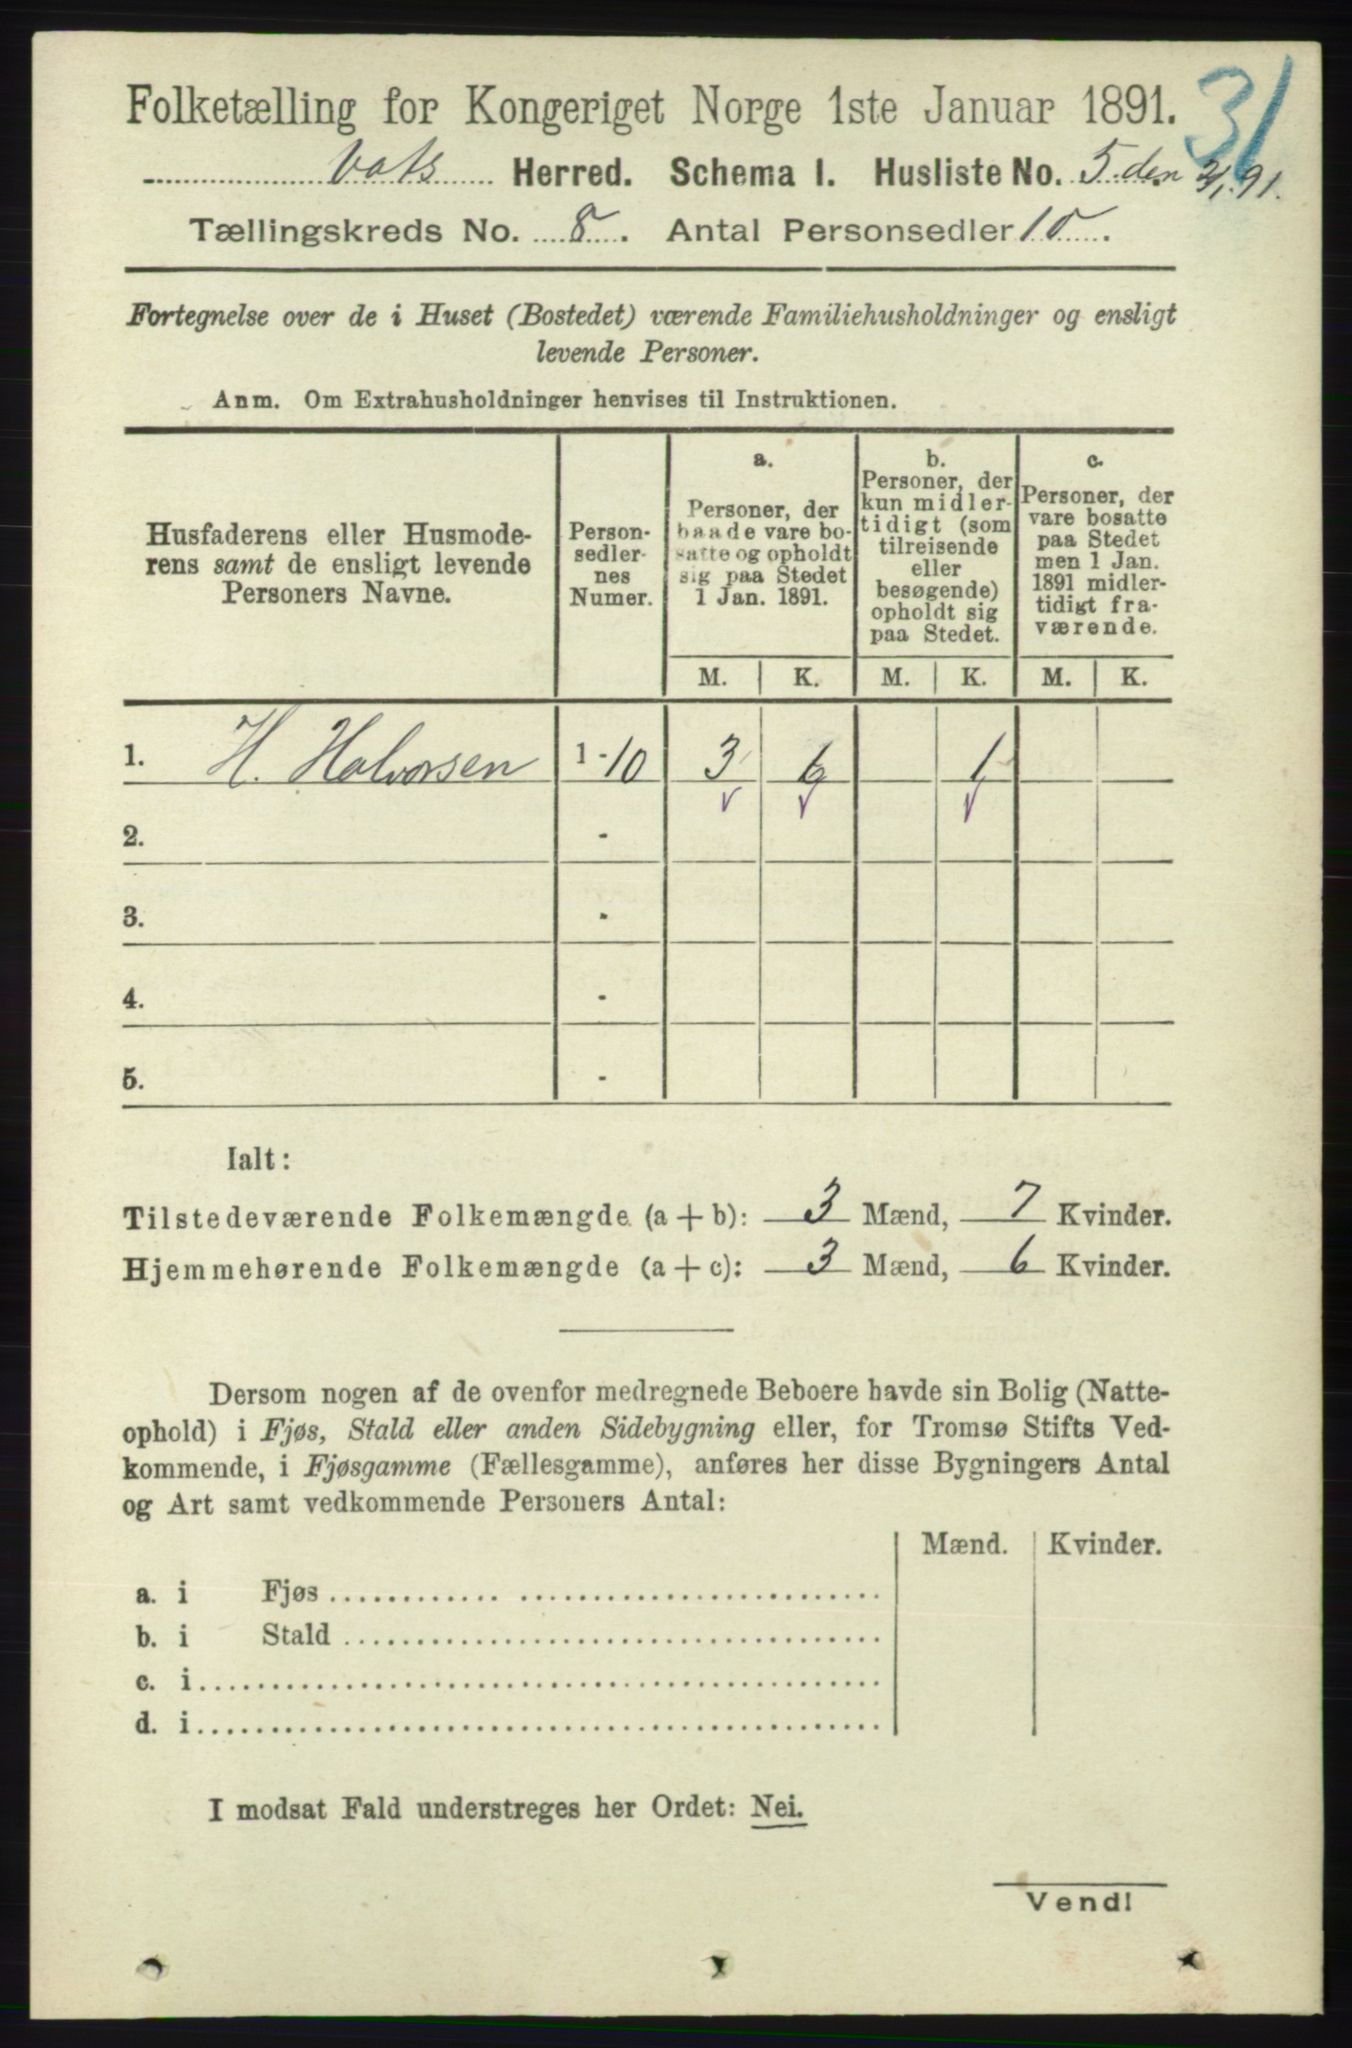 31
Folketælling for Kongeriget Norge 1ste Januar 1891.
Vats Herred. Schema I. Husliste No. 5 den 2/1. 91.
Tællingskreds No. 8. Antal Personsedler 10.
Fortegnelse over de i Huset (Bostedet) værende Familiehusholdninger og ensligt
levende Personer.
Anm. Om Extrahusholdninger henvises til Instruktionen.
Husfaderens eller Husmode-
rens samt de ensligt levende
Personers Navne.
Person-
sedler-
nes
Numer.
a.
Personer, der
baade vare bo-
satte og opholdt
sig paa Stedet
1 Jan. 1891.
b.
Personer, der
kun midler-
tidigt (som
tilreisende
eller
besøgende)
opholdt sig
paa Stedet.
c.
Personer, der
vare bosatte
paa Stedet
men 1 Jan.
1891 midler-
tidigt fra-
værende.
M. K. M. K. M. K.
1. H. Halvorsen 1-10 3 6 1
2. -
3. -
4. -
5. -
Ialt:
Tilstedeværende Folkemængde (a + b): 3 Mænd, 7 Kvinder.
Hjemmehørende Folkemængde (a + c): 3 Mænd, 6 Kvinder.
Dersom nogen af de ovenfor medregnede Beboere havde sin Bolig (Natte-
ophold) i Fjøs, Stald eller anden Sidebygning eller, for Tromsø Stifts Ved-
kommende, i Fjøsgamme (Fællesgamme), anføres her disse Bygningers Antal
og Art samt vedkommende Personers Antal:
Mænd. Kvinder.
a. i Fjøs
b. i Stald
c. i
d. i
I modsat Fald understreges her Ordet: Nei.
Vend!